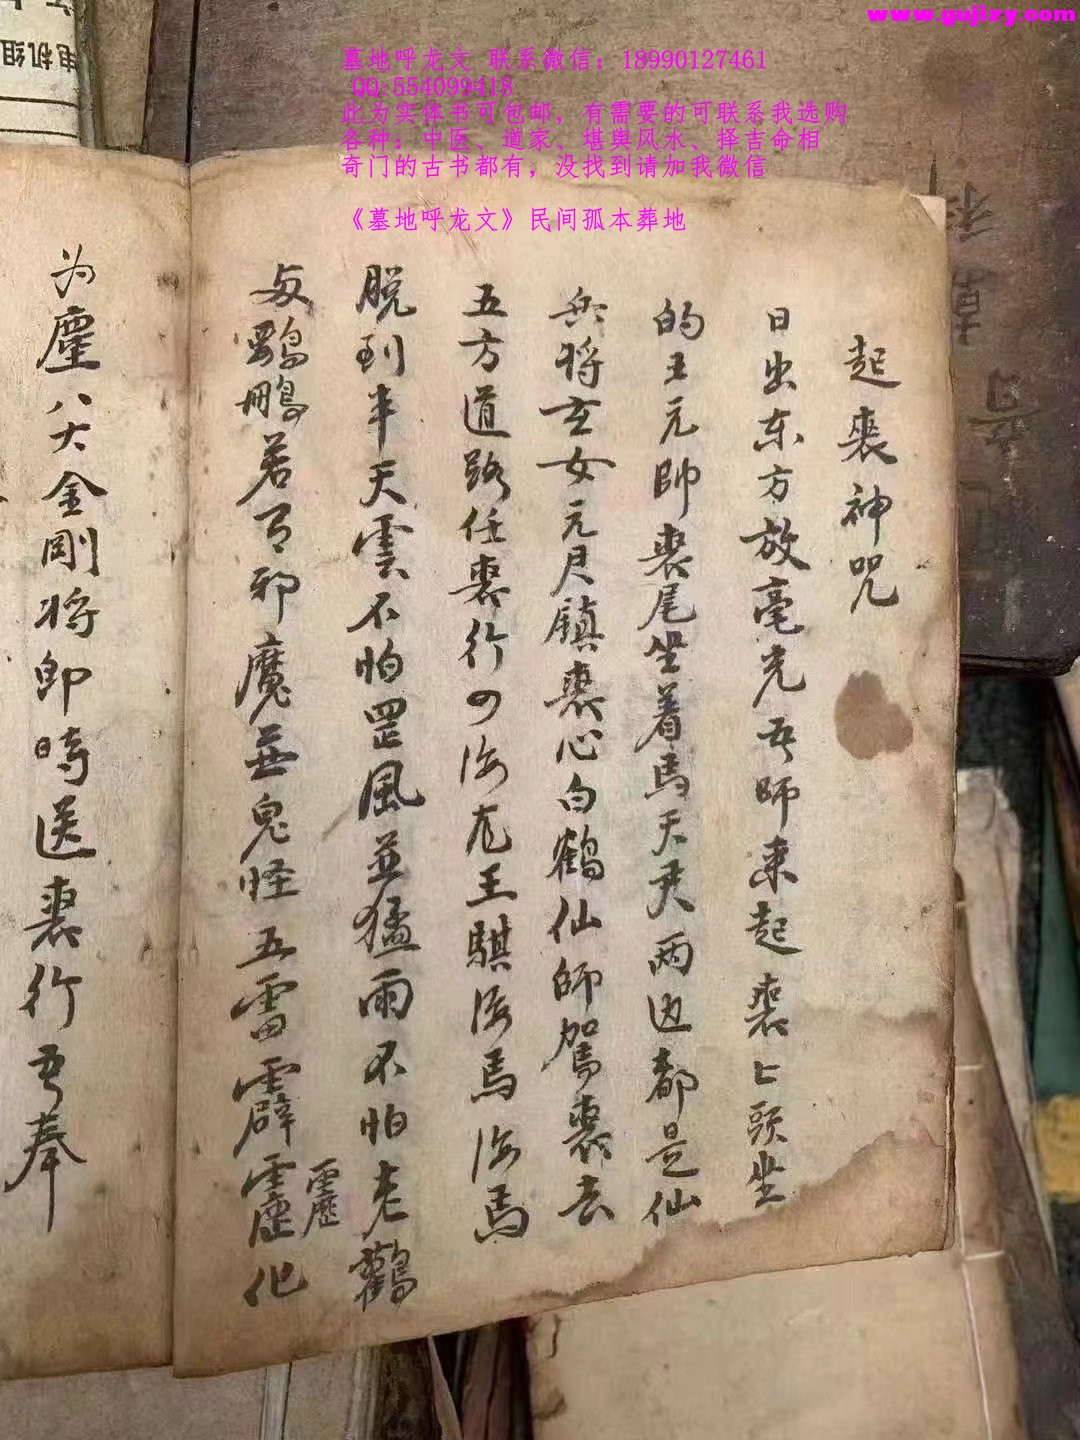 www.gujizy.com
墓地呼龙文 联系微信：18990127461
QQ:554099418
此为实体书可包邮，有需要的可联系我选购
各种：中医、道家、堪舆风水、择吉命相
奇门的古书都有，没找到请加我微信
《墓地呼龙文》民间孤本葬地
电机组
起丧神咒
日出东方放毫光吾师来起丧丧头坐
的王元帅丧尾坐着马天君两边都是仙
兵将玄女元尺镇丧心白鹤仙师驾丧去
五方道路任丧行四海龙王骐海馬海馬
脱到半天雲不怕罡風並猛雨不怕老鸛
与鹏若有邪魔並鬼怪五雷霹靂化
为塵八大金剛将即時送丧行吾奉